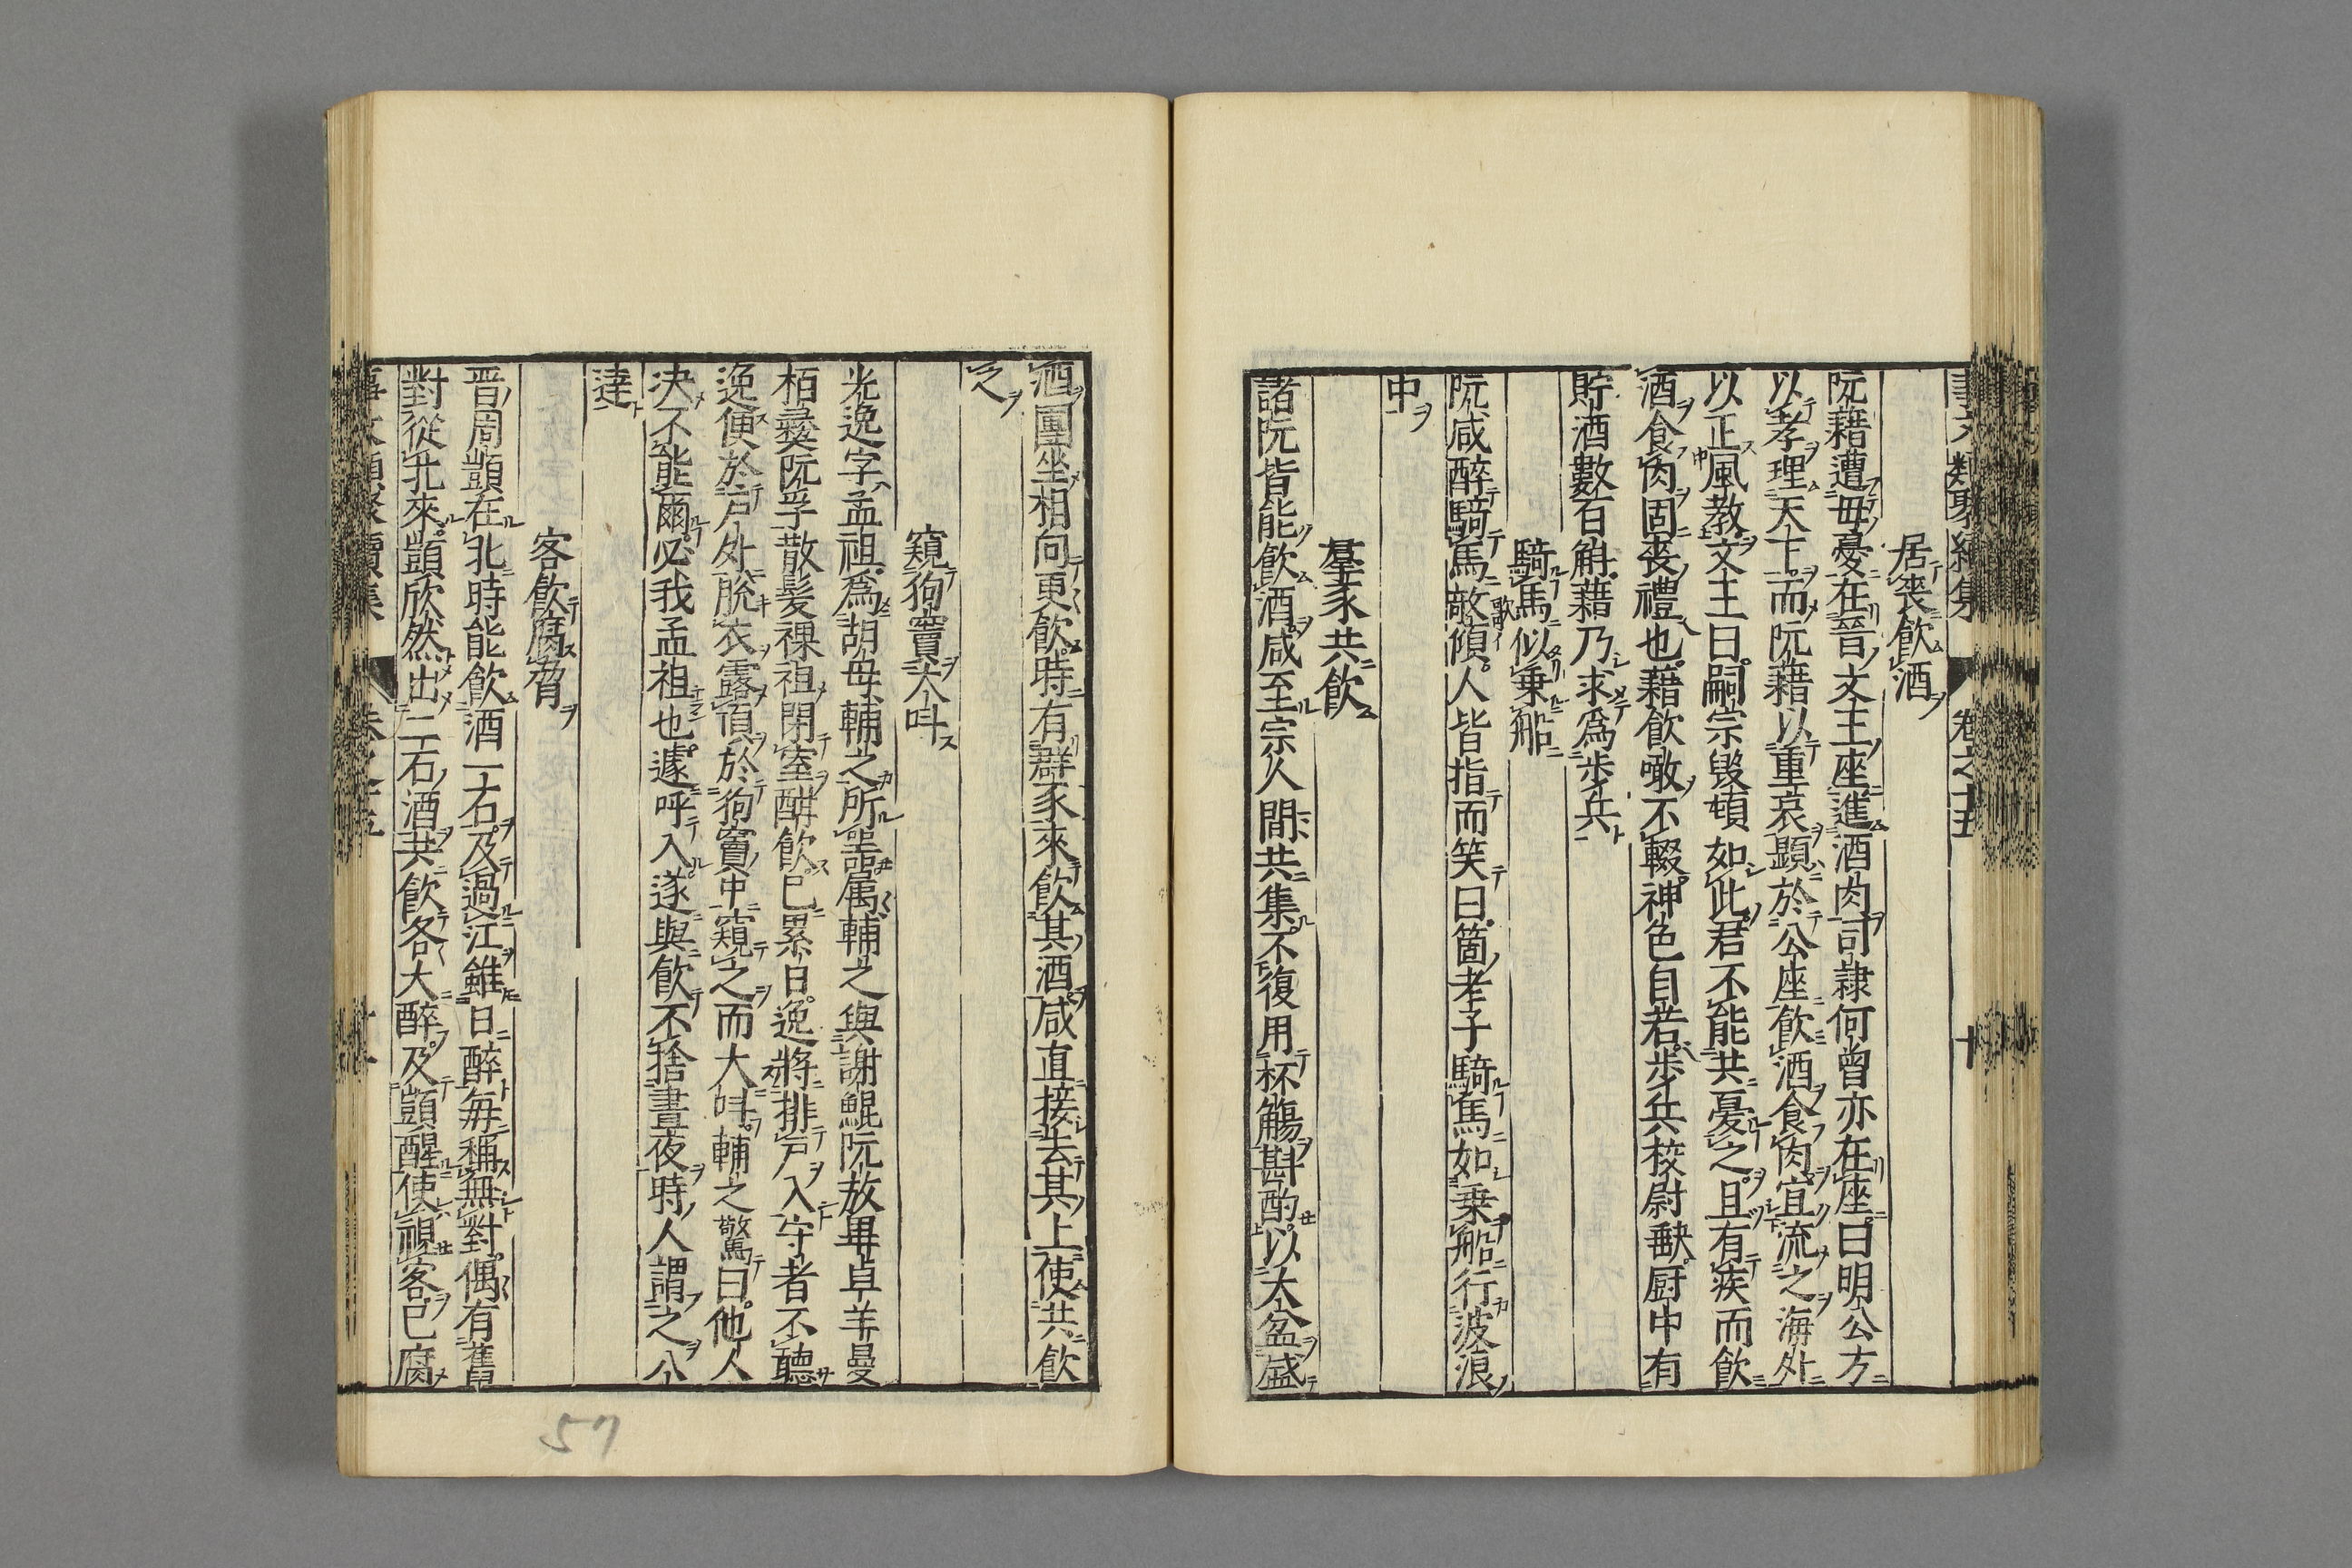 事文類聚續集 卷之十五 十
居喪飲酒
阮藉遭毋憂在晉文王座進酒肉司隷何曾亦在座曰明公方
以孝理天下而阮藉以重哀顕於公座飲酒食肉宜流之海外
以正風教文王曰嗣宗毀頓如此君不能共憂之且有疾而飲
酒食肉固喪禮也藉飲噉不輟神色自若步兵校尉缺厨中有
貯酒數百斛藉乃求爲步兵
騎馬似乗船
阮咸醉騎馬敧傾人皆指而笑曰箇老子騎馬如乗船行波浪
中
羣豕共飲
諸阮皆能飲酒咸至宗人間共集不復用杯觴斟酌以大盆盛
酒團坐相向更飲時有群豕來飲其酒咸直接去其上使共飲
之
窺狗竇大呌
光逸字孟祖爲胡毋輔之所噐属輔之與謝鯤阮放畢卓羊曼
栢彝阮孚散髪裸袒閉室酣飲已累日逸將排戸入守者不聽
逸便於戸外脫衣露頂於狗竇中窺之而大呌輔之驚曰他人
决不能爾必我孟祖也遽呼入遂與飲不捨晝夜時人謂之八
達
客飲腐脅
晋周顗在北時能飲酒一石及過江雖日醉毎稱無對偶有舊
對從北來顗欣然出二石酒共飲各大醉及顗醒使視客已腐
事文類聚續集 卷之十五 十一
57